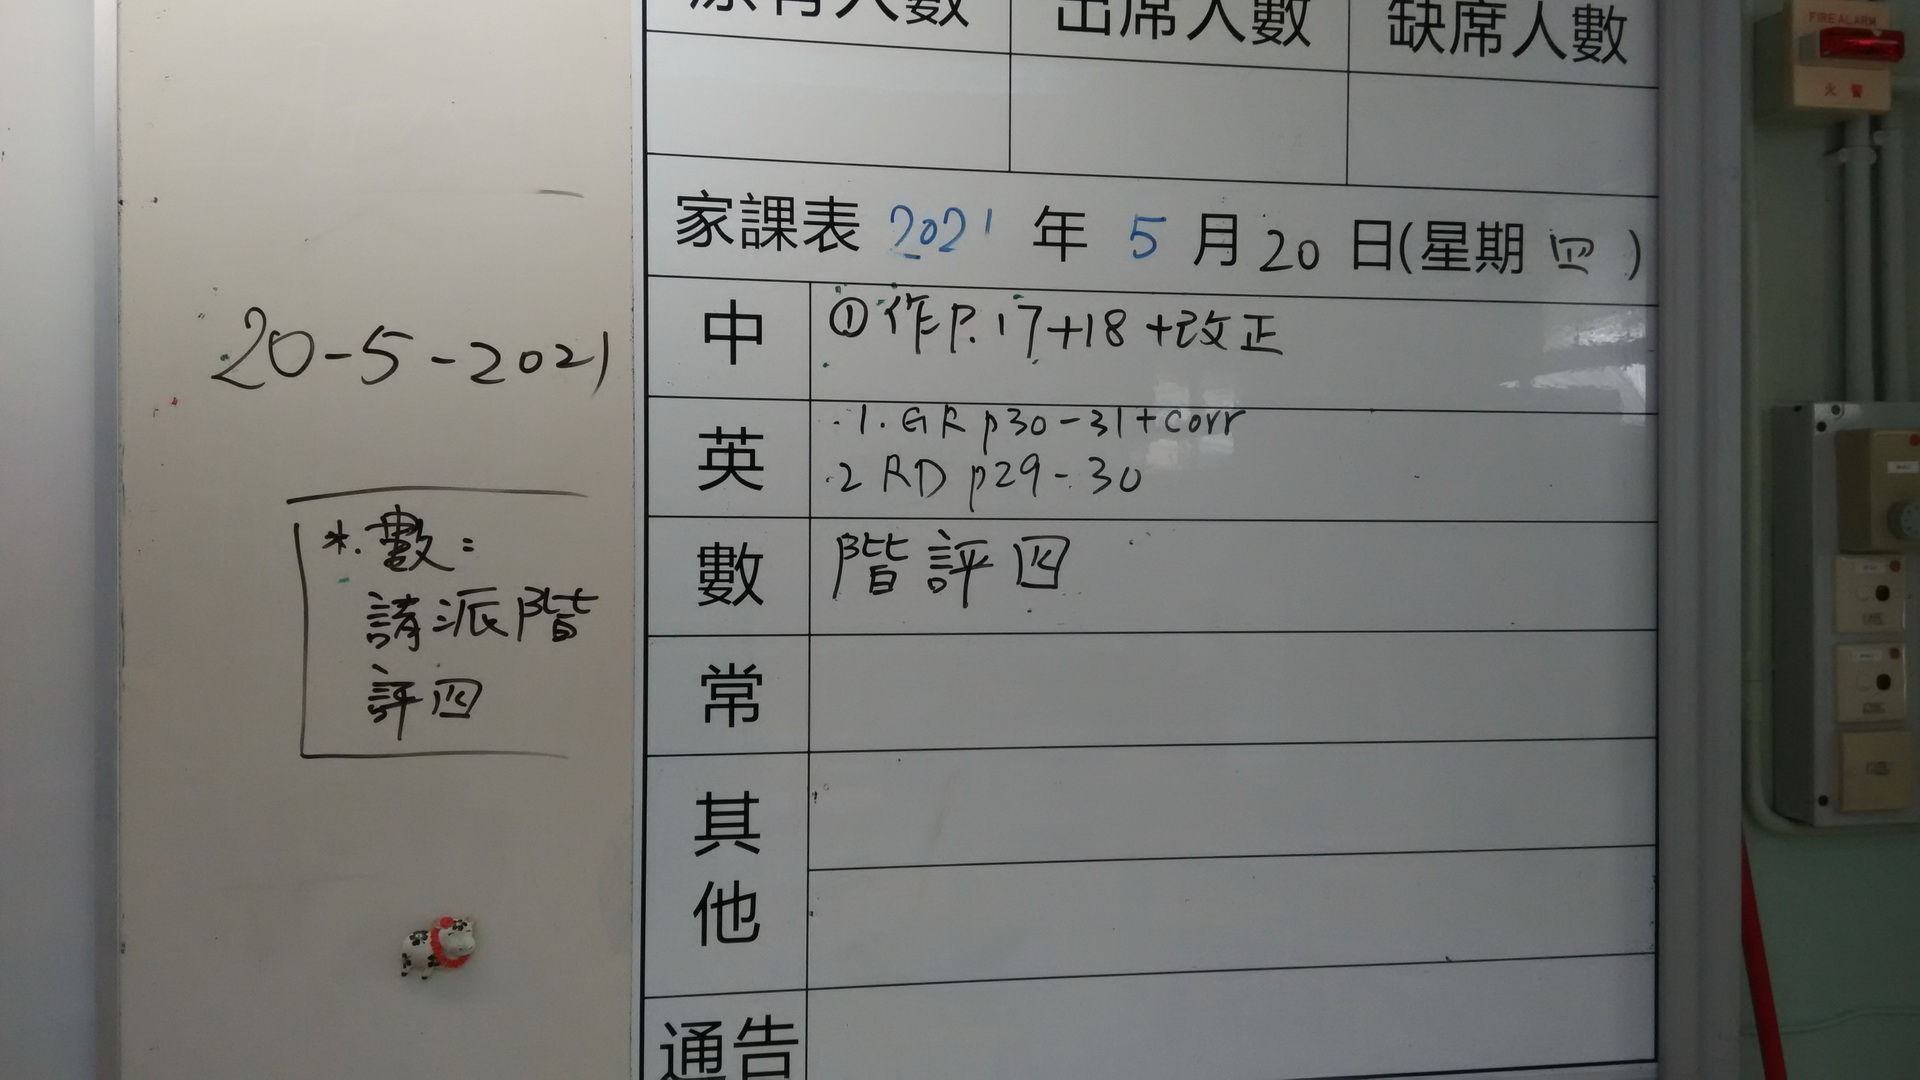 原有人數 出席人數 缺席人數
家課表 2021 年 5 月 20 日(星期 四 )
中 ①作P.17+18+改正
英 1. GR p30-31+corr
2 RD p29-30
數 階評四
常
其他
通告
20-5-2021
*.數:
請派階
評四
FIRE ALARM
火警